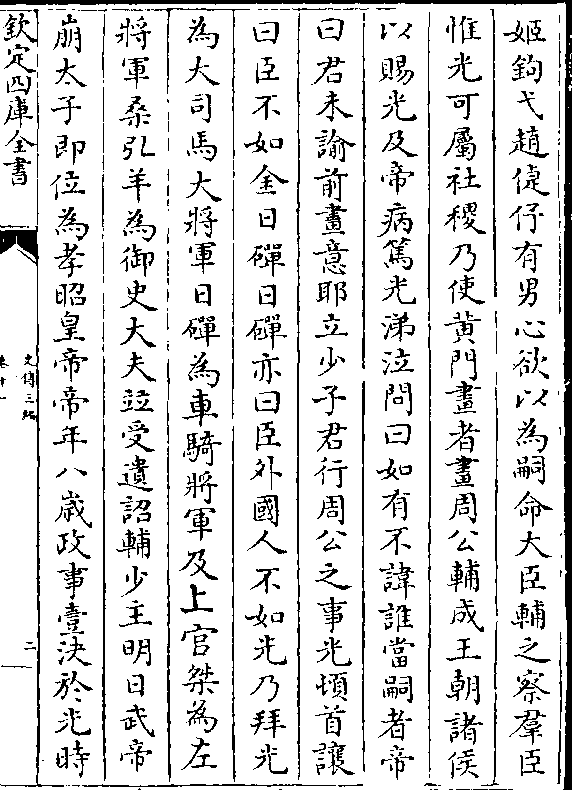 姬鉤弋趙倢伃有男心欲以為嗣命大臣輔之察羣臣
惟光可屬社稷乃使黄門畫者畫周公輔成王朝諸侯
以賜光及帝病篤光涕泣問曰如有不諱誰當嗣者帝
曰君未諭前畫意耶立少子君行周公之事光頓首讓
曰臣不如金日磾日磾亦曰臣外國人不如光乃拜光
為大司馬大將軍日磾為車騎將軍及上官桀為左
將軍桑引羊為御史大夫並受遺詔輔少主明日武帝
崩太子即位為孝昭皇帝帝年八歲政事壹決於光時
欽定四庫全書
史傳三編
卷十一
二